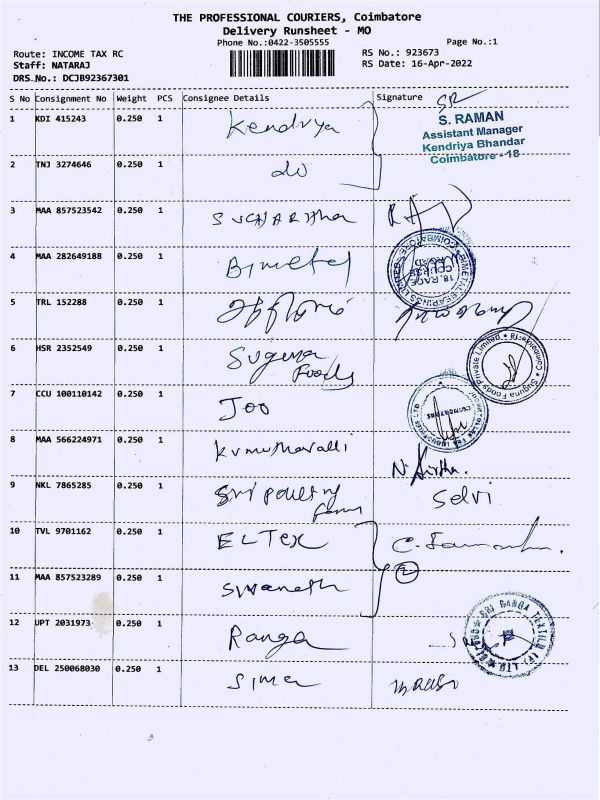 THE PROFESSIONAL COURIERS, Coimbatore
Delivery Runsheet - MO
Phone No.:0422-3505555 Page No.:1
Route: INCOME TAX RC RS No.: 923673
Staff: NATARAJ RS Date: 16-Apr-2022
DRS No.: DCJB92367301
S No Consignment No Weight PCS Consignee Details Signature
1 KDI 415243 0.250 1 Kendriya
S. RAMAN
Assistant Manager
Kendriya Bhandar
Coimbatore - 18
2 TNJ 3274646 0.250 1 do
3 MAA 857523542 0.250 1
4 MAA 282649188 0.250 1 Bimetal
BIMETAL BEARINGS LIMITED COIMBATORE
18, RACE COURSE ROAD
5 TRL 152288 0.250 1
6 HSR 2352549 0.250 1 Suguna
Foods
Suguna Foods Private Limited Coimbatore-18
7 CCU 100110142 0.250 1 Joo
8 MAA 566224971 0.250 1 Kumutharalli
9 NKL 7865285 0.250 1 Sri poultry Selvi
farm
10 TVL 9701162 0.250 1 ELTEX
2
11 MAA 857523289 0.250 1 Swaneth
12 UPT 2031973 0.250 1 Ranga
SRI RANGA TEXTILE (P) LTD
13 DEL 250068030 0.250 1 Sima